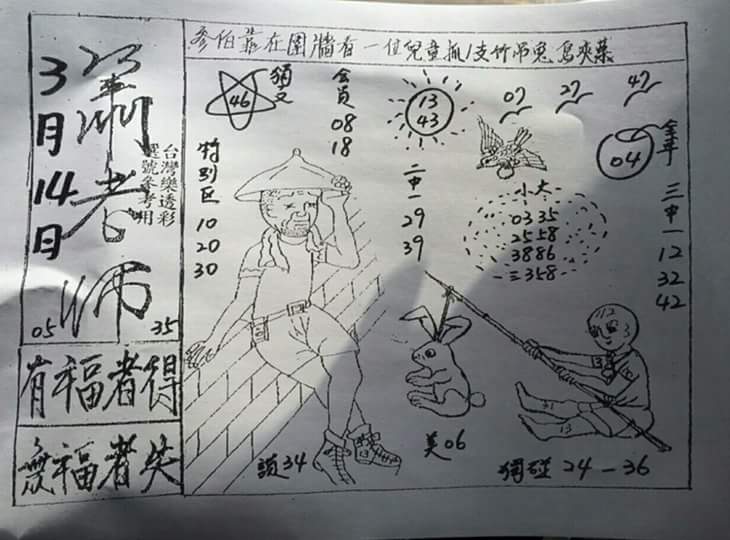 3月14日
蕭老師
台灣樂透彩
選號參考用
05
35
有福者得
無福者失
參伯靠在圍牆看一位兒童抓1支竹吊兔鳥夾葉
46
獨支
會員
08
18
13
43
07
27
47
04
全車
特別區
10
20
30
二中一
29
39
小大
0335
2558
3886
三358
三中一
12
32
42
112
3
13
31
13
頭34
美06
獨碰24—36